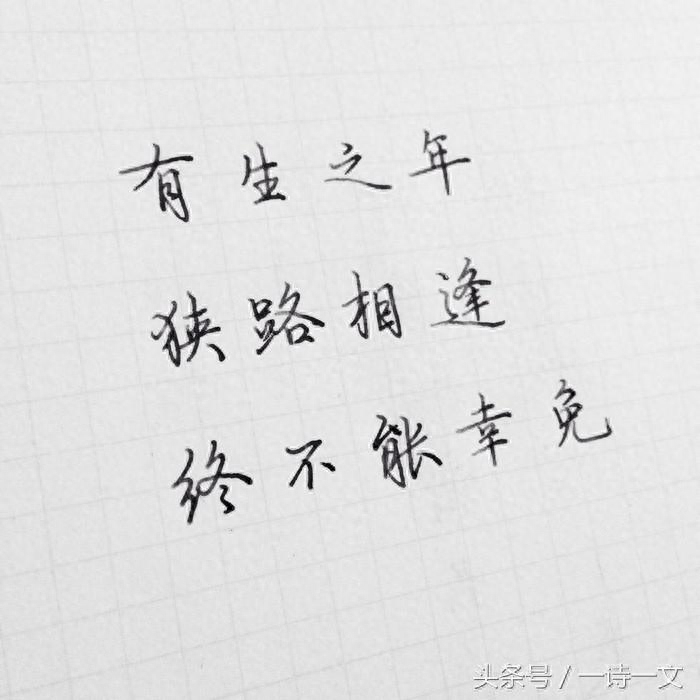 有生之年
狭路相逢
终不能幸免
头条号／一诗一文